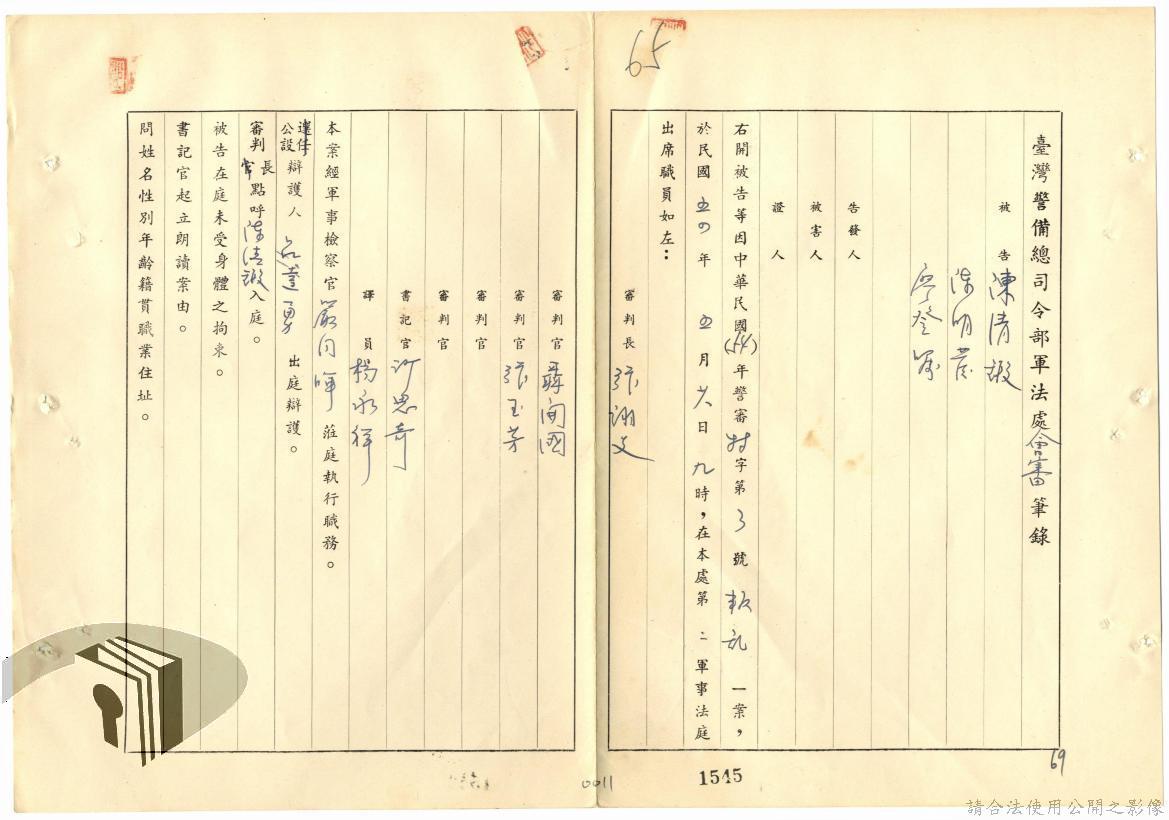 65
臺灣警備總司令部軍法處會審筆錄
被告 陳清緞
陳明發
告發人
被害人
證人
右開被告等因中華民國(54)年警審特字第3號 叛乱 一案,
於民國五四年五月廿八日九時,在本處第二軍事法庭
出席職員如左:
審判長 張詡文
審判官 聶開國
審判官 張玉芳
審判官
審判官
書記官 許思奇
譯員 楊永祥
本案經軍事檢察官 嚴同暉 蒞庭執行職務。
選任
公設辯護人 勇 出庭辯護。
審判長點呼陳清緞入庭。
被告在庭未受身體之拘束。
書記官起立朗讀案由。
問姓名性別年齡籍貫職業住址。
69
1545
0011
請合法使用公開之影像